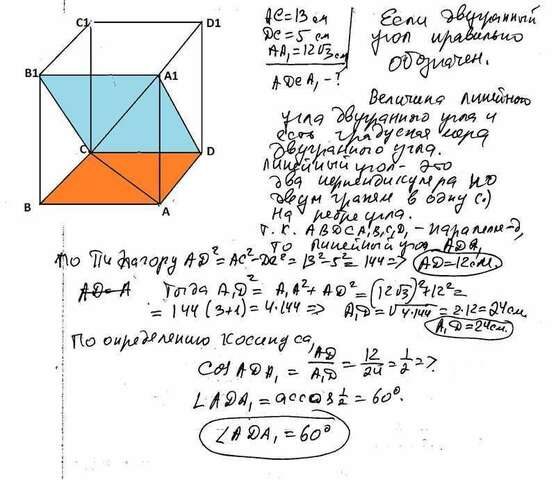 C1
D1
B1
A1
C
D
B
A
AC = 13 см
DC = 5 см
AA₁ = 12√3 см
ADCA₁ - ?
Если двугранный
угол правильно
обозначен.
Величина линейного
угла двугранного угла и
есть градусная мера
двугранного угла.
Линейный угол - это
два перпендикуляра по
двум граням в одну (·)
на ребре угла.
Т.К. ABDCA₁B₁C₁D₁ - параллеле-д,
то линейный угол ADA₁
По Пифагору AD² = AC² - DC² = 13² - 5² = 144 => AD = 12 см.
Тогда A₁D² = A₁A² + AD² = (12√3)² + 12² =
= 144 (3+1) = 4·144 => A₁D = √4·144 = 2·12 = 24 см
A₁D = 24 см.
По определению косинуса,
cos ADA₁ = AD/A₁D = 12/24 = 1/2 =>
∠ADA₁ = arccos 1/2 = 60°.
∠ADA₁ = 60°